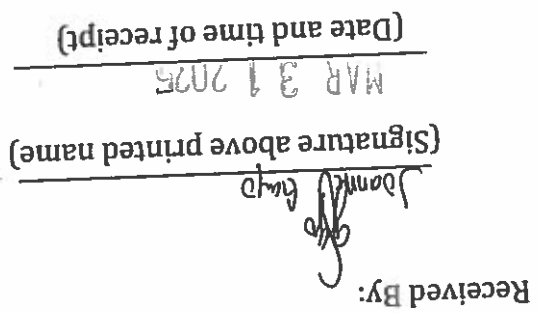 Received By:
(Signature above printed name)
MAR 31 2025
(Date and time of receipt)